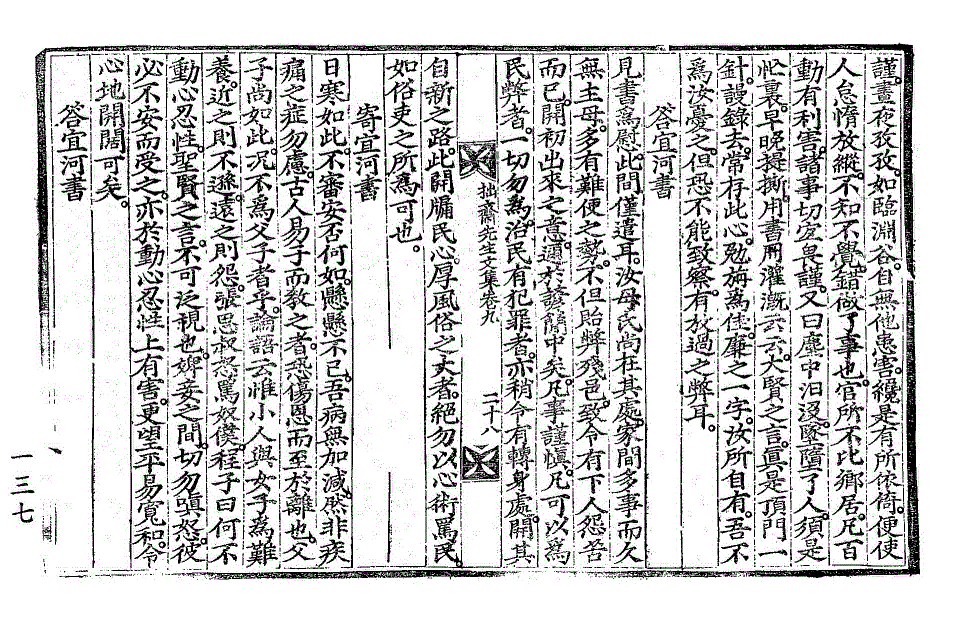 謹。晝夜孜孜如臨淵谷。自無他患害。纔是有所依倚。便使
人怠惰放縱。不知不覺。錯做了事也。官所不比鄕居。凡百
動有利害。諸事切宜畏謹。又曰塵中汨沒。墜墮了人。須是
忙裏。早晩提撕。用書冊灌漑云云。大賢之言。眞是頂門一
針。謾錄去。常存此心。勉旃爲佳。廉之一字。汝所自有。吾不
爲汝憂之。但恐不能致察。有放過之弊耳。
答宜河書
見書爲慰。此間僅遣耳。汝母氏尙在其處。家間多事而欠
無主母。多有難便之勢。不但貽弊殘邑。致令有下人怨咨
而已。開初出來之意。邇於諺簡中矣。凡事謹愼。凡可以爲
民弊者。一切勿爲。治民有犯罪者。亦稍令有轉身處。開其
拙齋先生文集卷九 二十八
自新之路。此開牖民心。厚風俗之大者。絕勿以心術罵民
如俗吏之所爲可也。
寄宜河書
日寒如此。不審安否何如。懸懸不已。吾病無加減。然非疾
痛之症。勿慮。古人易子而敎之者。恐傷恩而至於離也。父
子尙如此。況不爲父子者乎。論語云惟小人與女子爲難
養。近之則不遜。遠之則怨。張思叔怒罵奴僕。程子曰何不
動心忍性。聖賢之言。不可泛視也。婢妾之間。切勿嗔怒。彼
必不安而受之。亦於動心忍性上有害。更望平易寬和。令
心地開闊可矣。
答宜河書
一三七